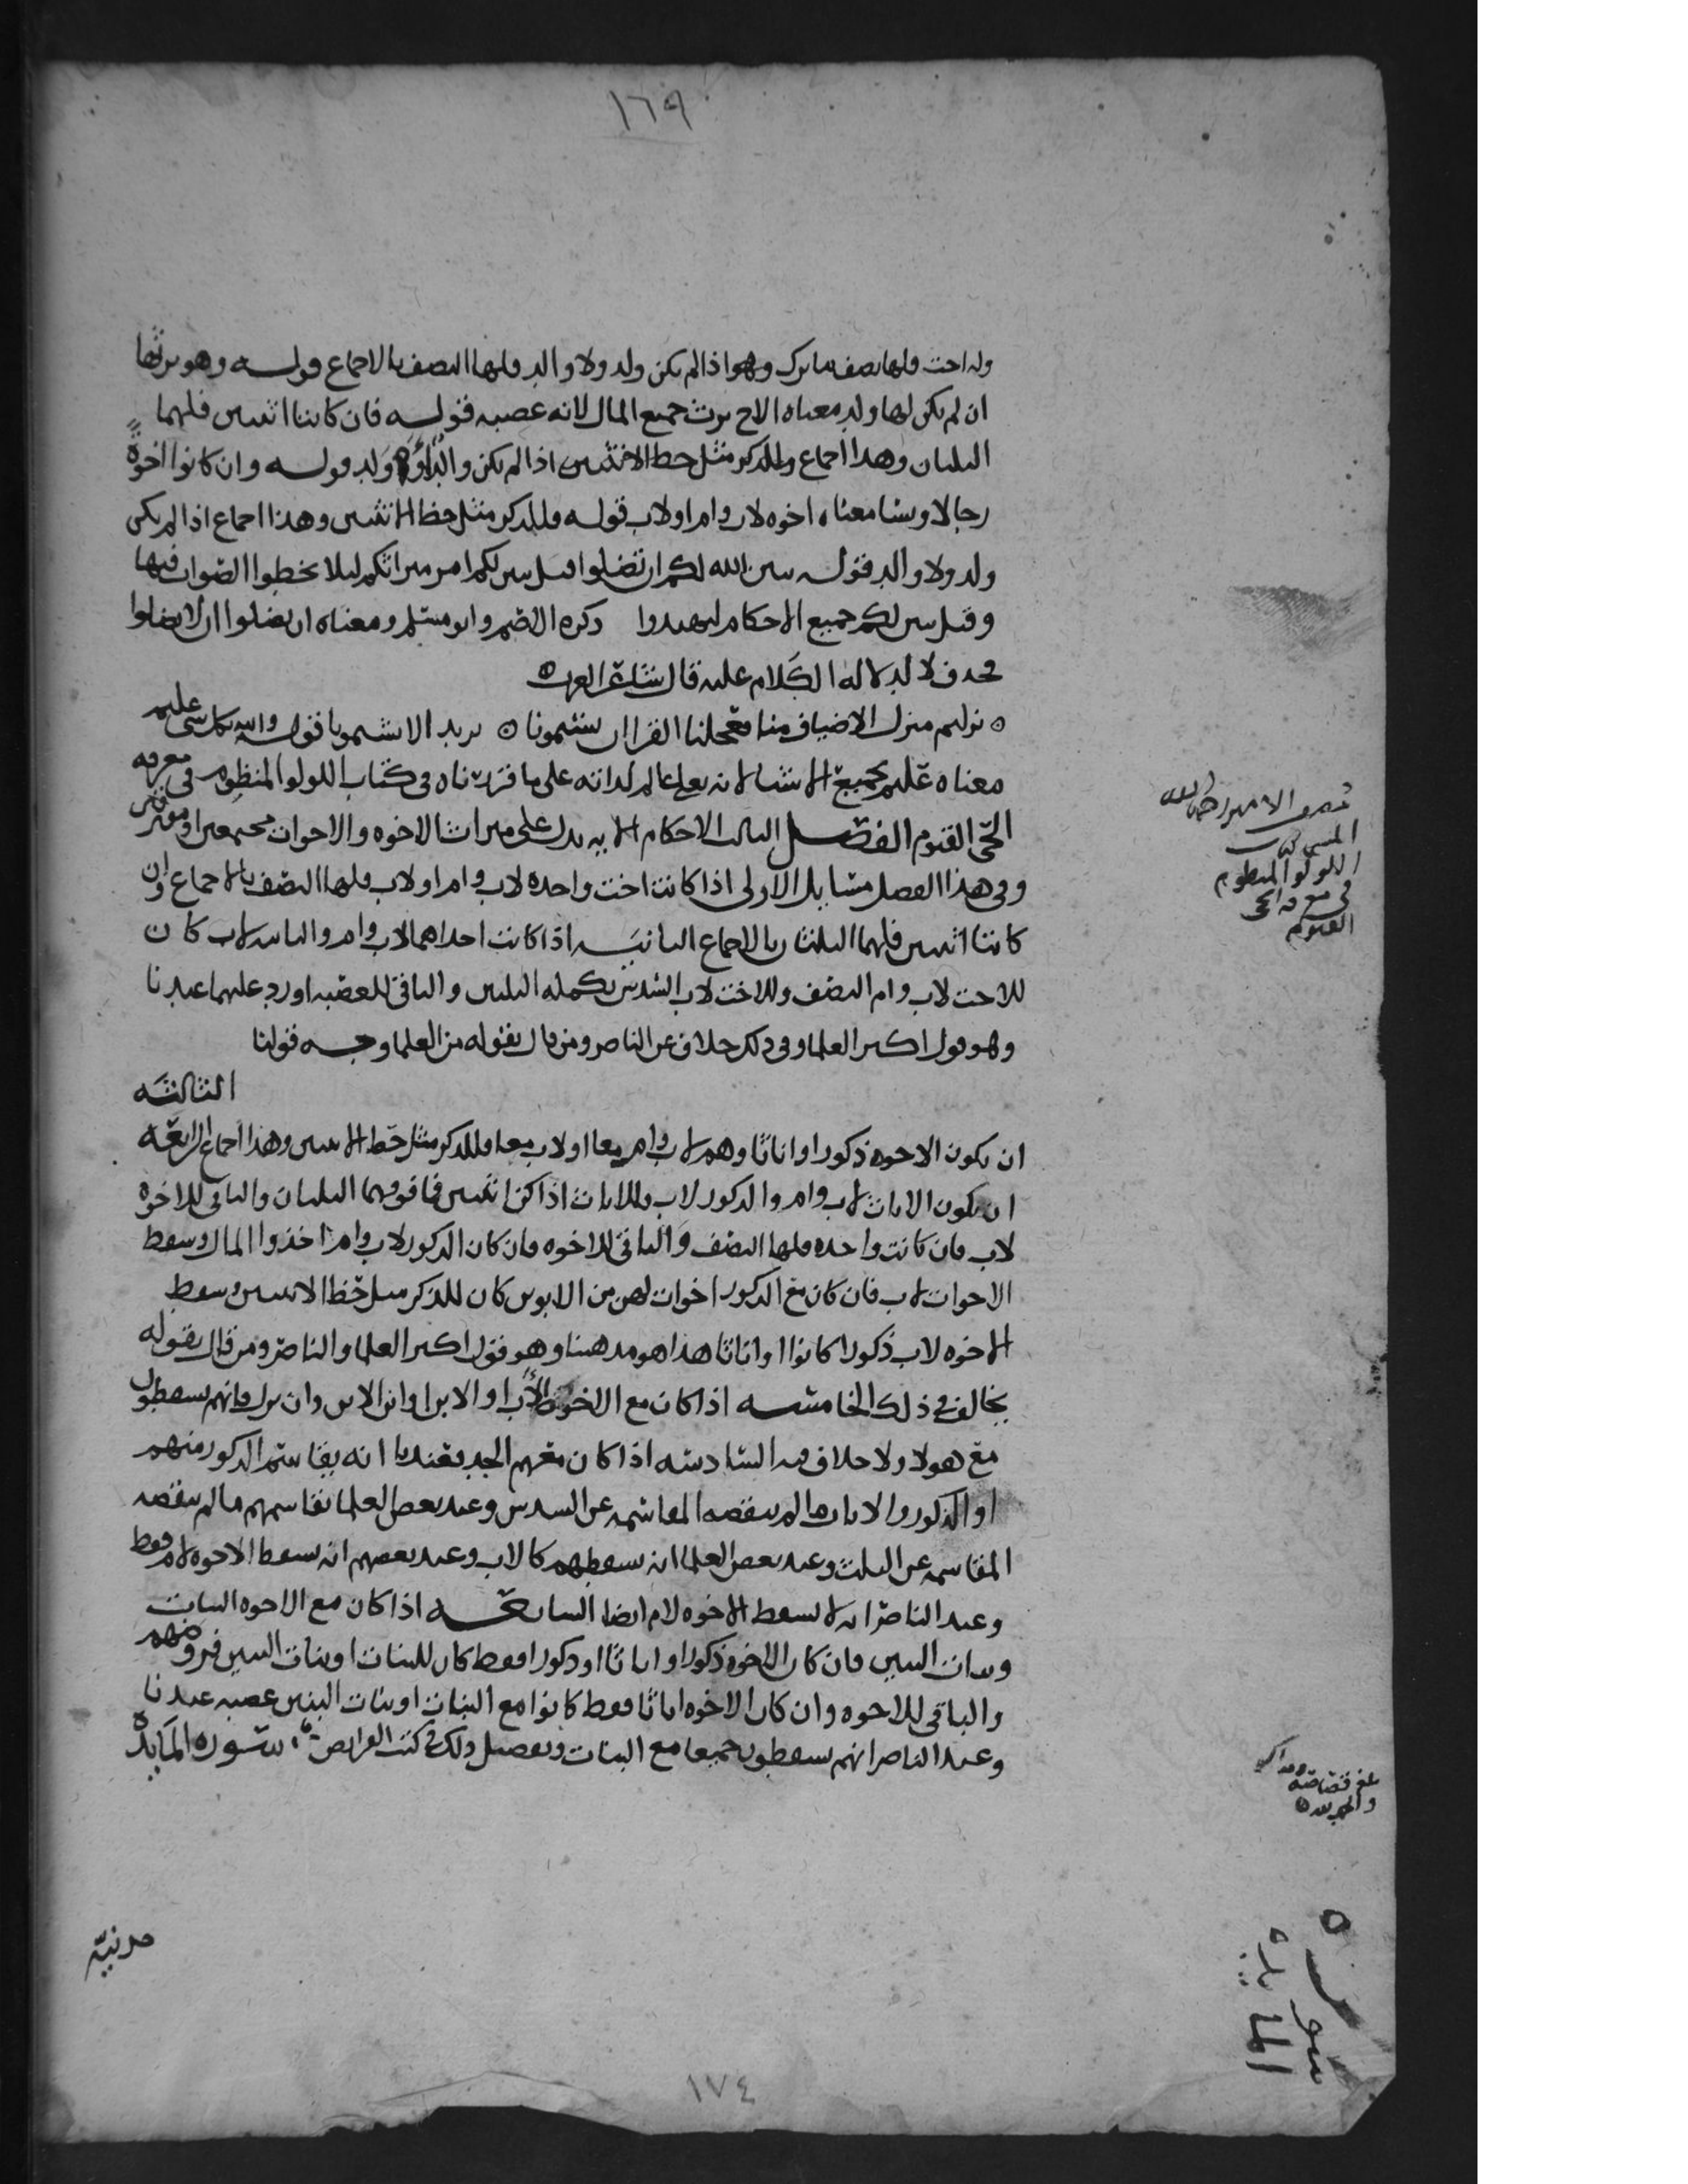 ١٦٩
وله اخت فلها نصف ما ترك وهو اذا لم يكن ولد ولا والد فلها النصف بالاجماع قوله وهو يرثها
ان لم يكن لها ولد معناه الاخ يرث جميع المال لانه عصبه قوله فان كانتا اثنتين فلهما
الثلثان وهذا اجماع وللذكر مثل حظ الانثيين اذا لم يكن والد ولا ولد قوله وان كانوا اخوة
رجالا ونسا معناه اخوه لاب وام او لاب قوله فللذكر مثل حظ الانثيين وهذا اجماع اذا لم يكن
ولد ولا والد قوله يبين الله لكم ان تضلوا قيل يبين لكم امر ميراثكم ليلا تخطوا الصواب فيها
وقيل يبين لكم جميع الاحكام لتهتدوا ذكره الاصم وابو مسلم ومعناه ان تضلوا ان لا تضلوا
فحذف لا لدلالة الكلام عليه قال شاعر العرب
نزلتم منزل الاضياف منا فعجلنا القرا ان تشتمونا يريد الا تشتمونا قوله والله بكل شي عليم
معناه عليم بجميع الاشيا لانه تعالى عالم لذاته على ما قررناه في كتاب اللولو المنظوم في معرفه
الحي القيوم الفصل الثالث الاحكام الايه تدل على ميراث الاخوه والاخوات مجتمعين او مفترقين
وفي هذا الفصل مسايل الاولى اذا كانت اخت واحده لاب وام او لاب فلها النصف بالاجماع وان
كانتا اثنتين فلهما الثلثان بالاجماع الثانيه اذا كانت احداهما لاب وام والثانيه لاب كان
للاخت لاب وام النصف وللاخت لاب السدس تكمله الثلثين والباقي للعصبه او رد عليهما عندنا
وهو قول اكثر العلما وفي ذلك خلاف عن الناصر ومن قال بقوله من العلما وجه قولنا
الثالثه
ان يكون الاخوه ذكورا واناثا وهم لاب وام معا او لاب معا فللذكر مثل حظ الانثيين وهذا اجماع الرابعه
ان يكون الاناث لاب وام والذكور لاب فللاناث اذا كن اثنتين فما فوقهما الثلثان والباقي للاخوه
لاب فان كانت واحده فلها النصف والباقي للاخوه فان كان الذكور لاب وام اخذوا المال وسقط
الاخوات لاب فان كان مع الذكور اخوات لهن من الابوين كان للذكر مثل حظ الانثيين وسقط
الاخوه لاب ذكورا كانوا او اناثا هذا هو مذهبنا وهو قول اكثر العلما والناصر ومن قال بقوله
يخالف في ذلك الخامسه اذا كان مع الاخوه الاب او الابن او ابن الابن وان نزل فانهم يسقطون
مع هولا ولا خلاف فيه السادسه اذا كان معهم الجد فعندنا انه يقاسم الذكور منهم
او الذكور والاناث ما لم تنقصه المقاسمه عن السدس وعند بعض العلما يقاسمهم ما لم تنقصه
المقاسمه عن الثلث وعند بعض العلما انه يسقطهم كالاب وعند بعضهم انه يسقط الاخوه لام فقط
وعند الناصر انه لا يسقط الاخوه لام ايضا السابعه اذا كان مع الاخوه البنات
وبنات البنين فان كان الاخوه ذكورا واناثا او ذكورا فقط كان للبنات او بنات البنين فروضهم
والباقي للاخوه وان كان الاخوه اناثا فقط كانوا مع البنات او بنات البنين عصبه عندنا
وعند الناصر انهم يسقطون جميعا مع البنات وتفصيل ذلك في كتب الفرايض سورة المايدة
مدنيّة
المسمى كتاب
اللولو المنظوم
في معرفه الحي
القيوم
والحمد لله
سورة
المايدة
١٧٤